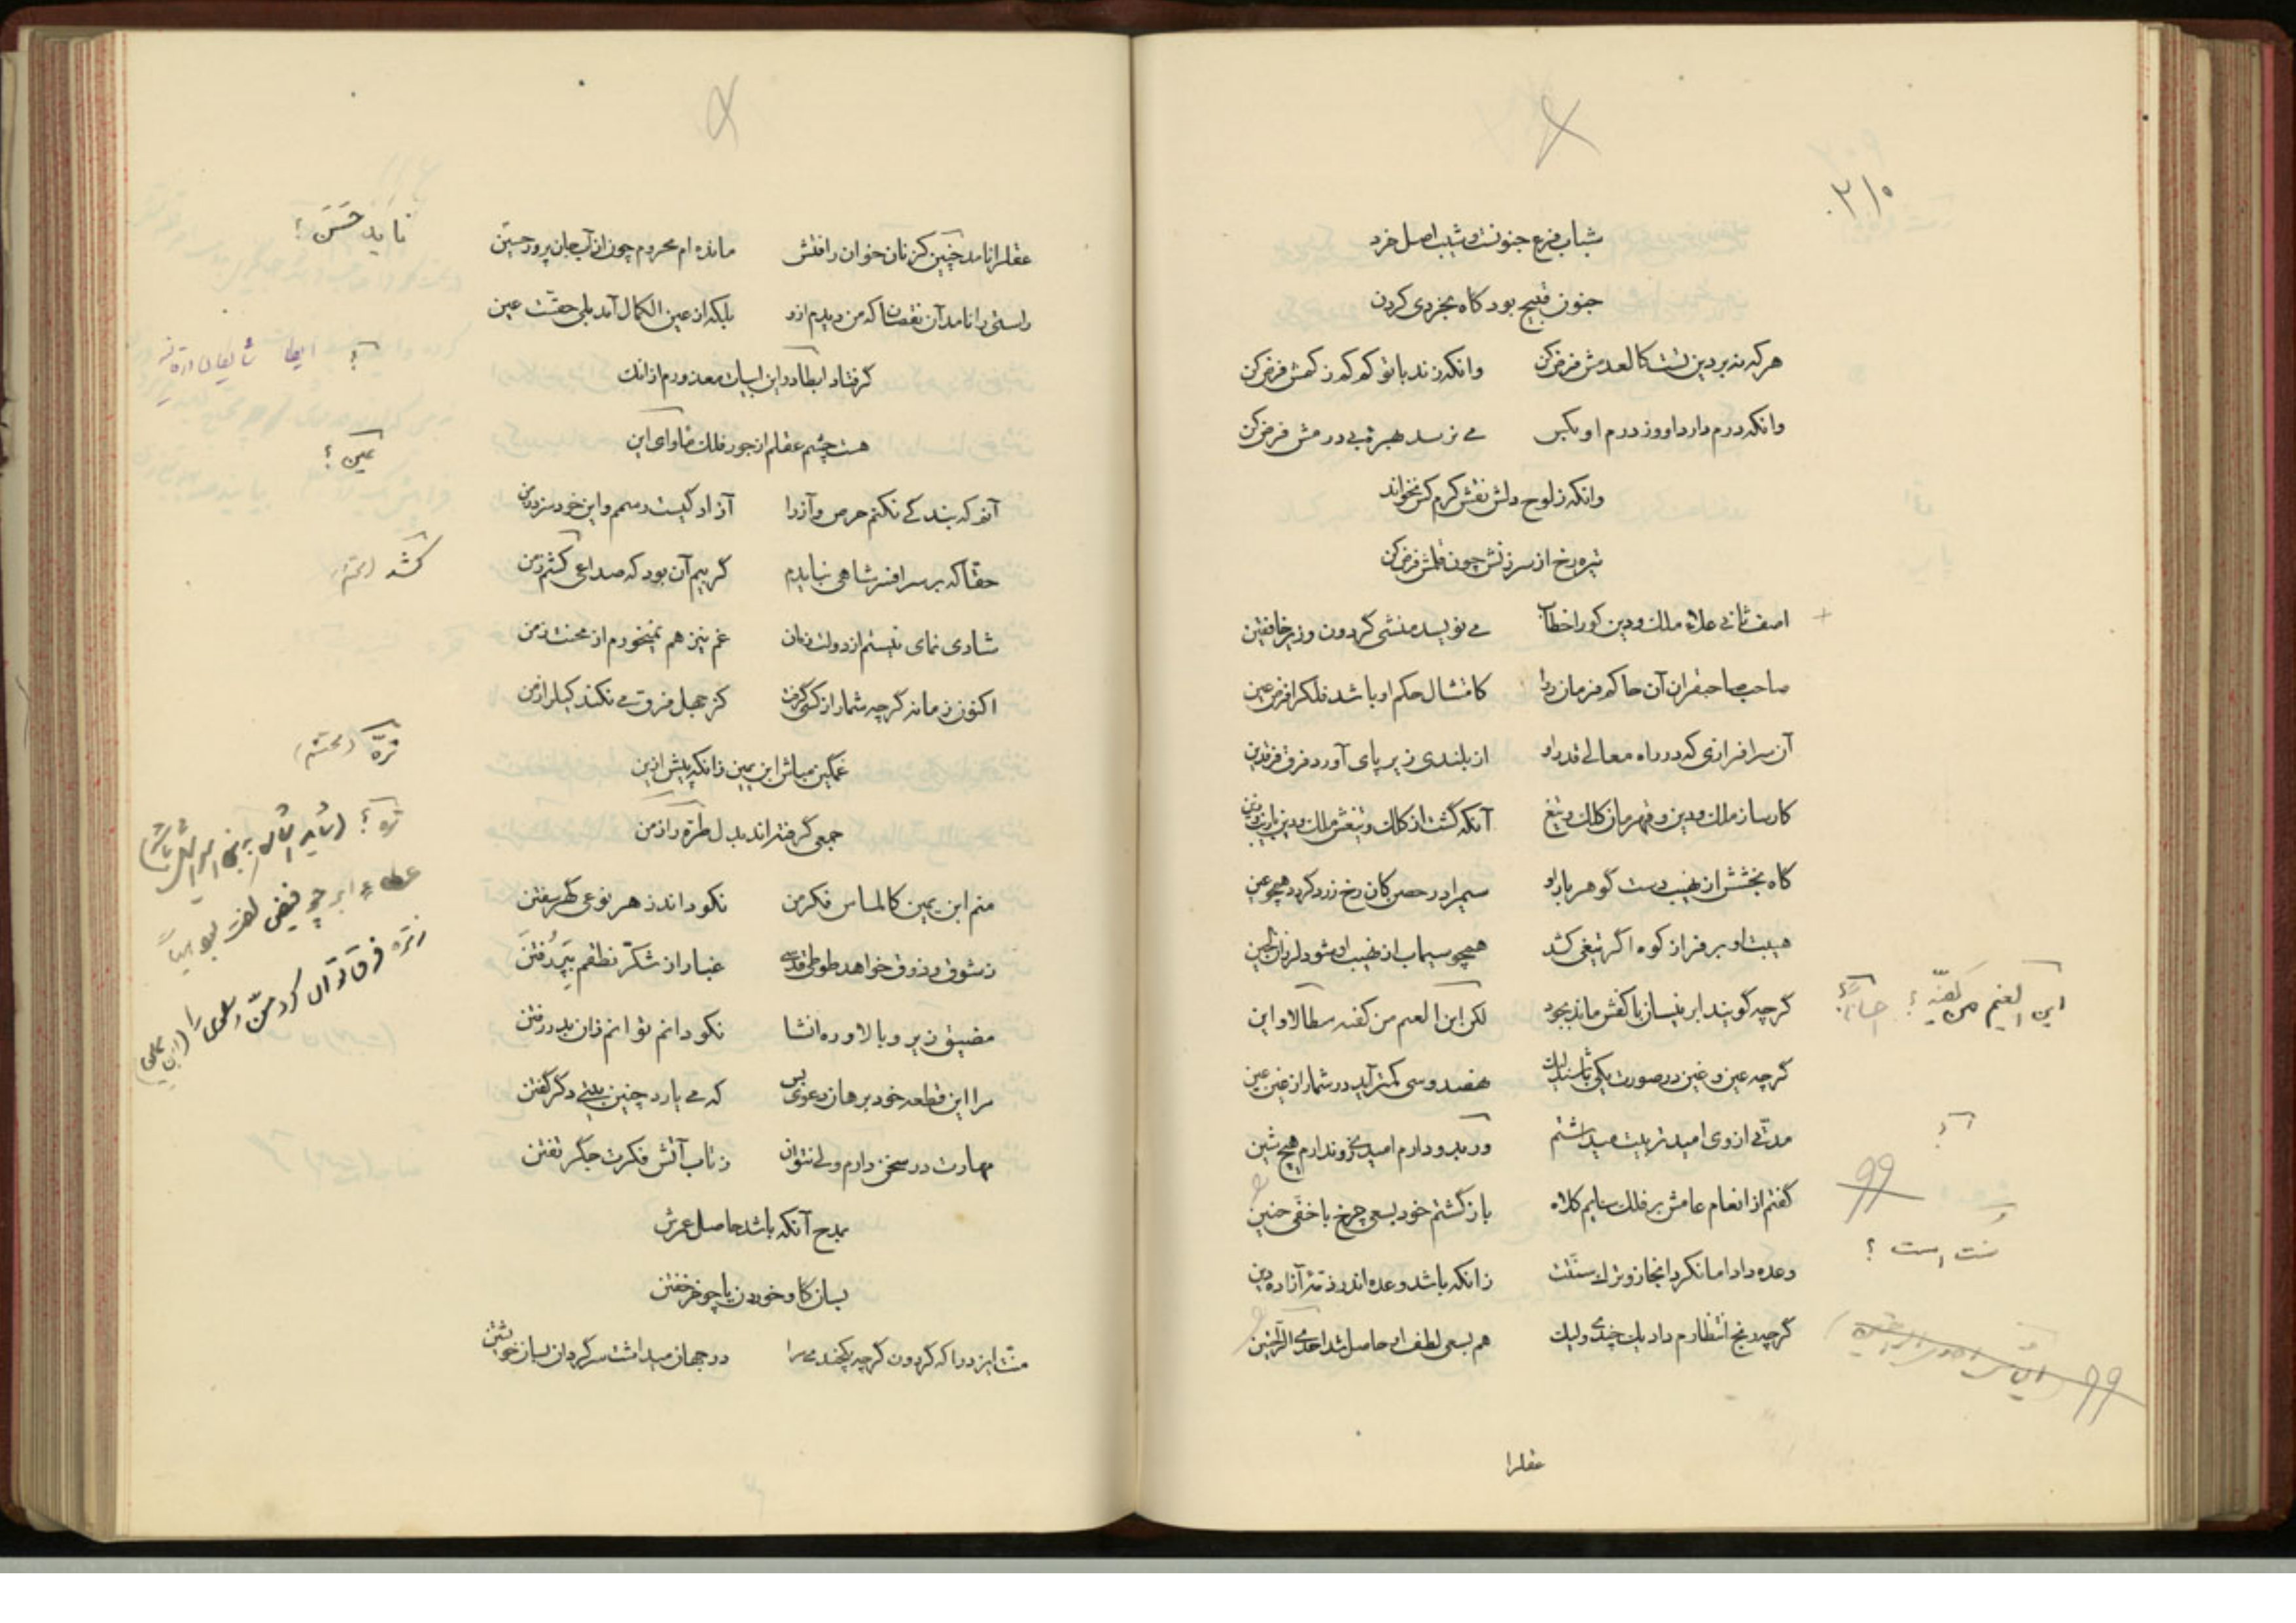 ۳۱۰
شباب فرع جنونست و شیب اصل خرد
جنون قبیح بود گاه بخردی کردن
هر که نه بر دین تست کالعدمش فرض کن وانکه زند با تو کم کم ز کمش فرض کن
وانکه درم دارد او وز درم او بکس می نرسد بهرهٔ بی درمش فرض کن
وانکه ز لوح دلش نقش کرم کس نخواند
تیره رخ از سرزنش چون قلمش فرض کن
اصف ثانی علاء ملک و دین کو را خطاب می نویسد منشی گردون وزیر خافقین
صاحب صاحبقران آن حاکم فرمان روا کامتثال حکم او باشد فلک را فرض عین
آن سرافرازی که در راه معالی قدر او از بلندی زیر پای آورد فرق فرقدین
کارساز ملک و دین و قهرمان کلک و تیغ آنکه گشت از کلک و تیغش ملک و دین را زیب و زین
گاه بخشش از نهیب دست گوهربار او سیم را در حصن کان رخ زرد گردد همچو عین
هیبت او بر فراز کوه اگر تیغی کشد همچو سیماب از نهیب او شود لرزان لجین
گرچه گویند ابر نیسان با کفش ماند بجود لکن این العیم من کفیه سطالا و این
این الغیم من کفیه ؟
گرچه عین و غین در صورت یکی باشند لیک هفصد و سی کمتر آید در شمار از غین عین
مدتی از وی امید تربیت میداشتم
گفتم از انعام عامش بر فلک سایم کلاه باز گشتم خود بسعی چرخ با خفی حنین
وعده داد اما نکرد انجاز و ترک سنتست زانکه باشد وعده اندر ذمهٔ آزاده دین
سنت است ؟
گرچه رنج انتظارم داد یک چندی ولیک هم بسعی لطف او حاصل شد احدی الراحتین
عقل را
عقل را نامد چنین کز نان خوان رافتش مانده ام محروم چون از آب جان پرور حسین
ناید حسن ؟
راستی را نامد آن نقصان که من دیدم ازو بلکه از عین الکمال آمد بلی حقست عین
گر فتاد ابطا در این ابیات معذورم ازانک
هست چشم عقلم از جور فلک ماوای این
غین ؟
آنم که بندگی نکنم حرص و آز را آزاد گیست رسمم و این خود سزد ز من
حقا که بر سر افسر شاهی نبایدم گر بیم آن بود که صداعی کشد ز من
کشد
شادی نمای نیستم از دولت زمان غم نیز هم نمیخورم از محنت ز من
اکنون زمانه گرچه شمار از کسی گرفت کز جهل فرق می نکند کیل را ز من
غمگین مباش ابن یمین زانکه پیش ازین
جمعی گرفته اند بدل طره را ز من
تره
منم ابن یمین کالماس فکر من نکو داند ز هر نوعی گهر سفتن
ز شوق و ذوق خواهد طوطی قدسی غبار از شکر نطقم بپر رفتن
مضیق زیر و بالا و ره انشا نکو دانم توانم زان بدر رفتن
مرا این قطعه خود برهان دعوی بس که می یارد چنین بیتی دگر گفتن
مهارت در سخن دارم ولی نتوان ز تاب آتش فکرت جگر تفتن
بمدح آنکه باشد حاصل عمرش
بسان گاو خوردن یا چو خر خفتن
منت ایزد را که گردون گرچه یکچندی مرا در جهان میداشت سرگردان بسان خویشتن